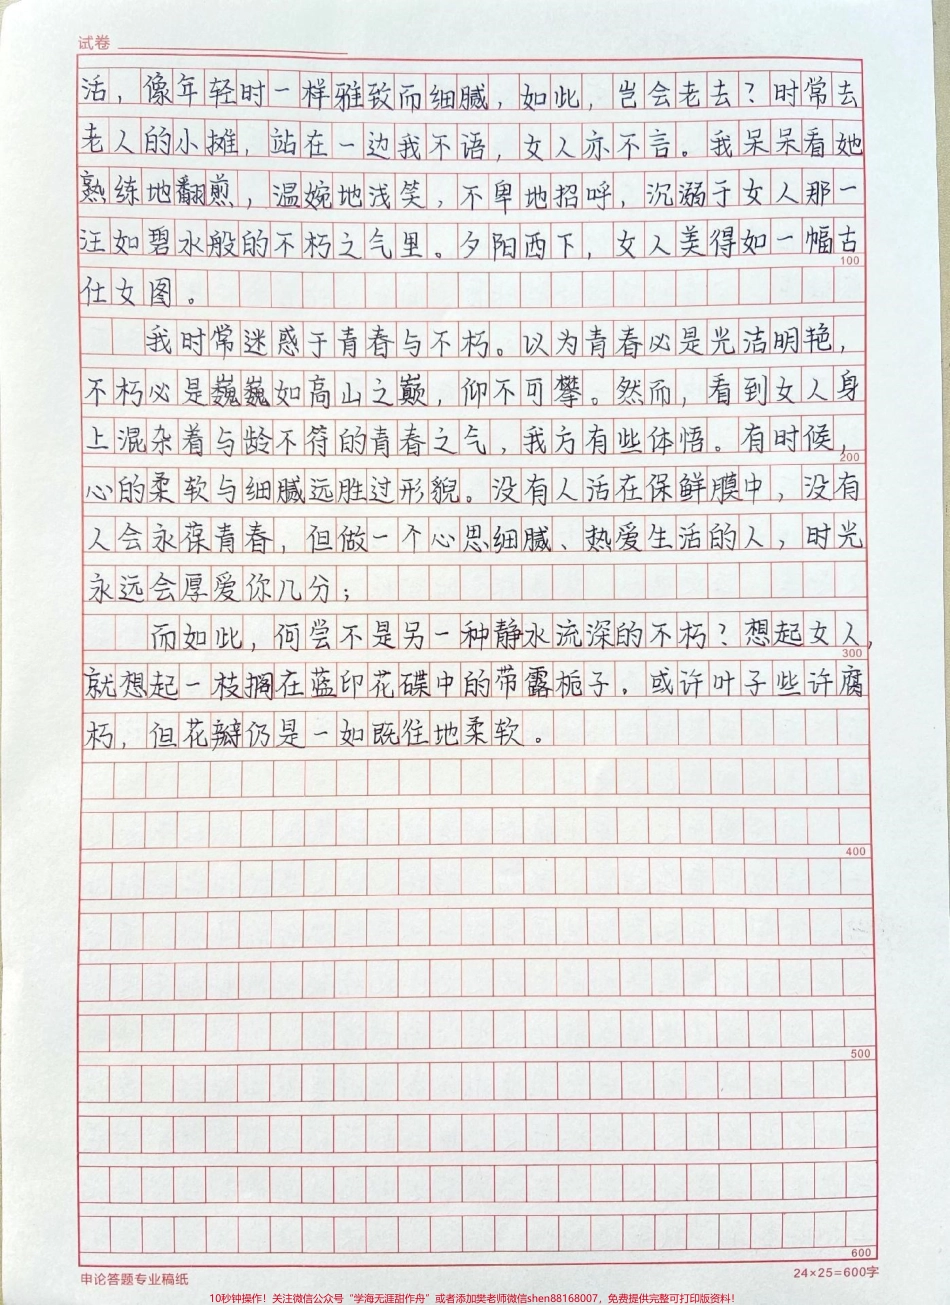 试卷
活，像年轻时一样雅致而细腻，如此，岂会老去？时常去
老人的小摊，站在一边我不语，女人亦不言。我呆呆看她
熟练地翻煎，温婉地浅笑，不卑地招呼，沉溺于女人那一
汪如碧水般的不朽之气里。夕阳西下，女人美得如一幅古
100
仕女图。
我时常迷惑于青春与不朽。以为青春必是光洁明艳，
不朽必是巍巍如高山之巅，仰不可攀。然而，看到女人身
上混杂着与龄不符的青春之气，我方有些体悟。有时候，
200
心的柔软与细腻远胜过形貌。没有人活在保鲜膜中，没有
人会永葆青春，但做一个心思细腻、热爱生活的人，时光
永远会厚爱你几分；
而如此，何尝不是另一种静水流深的不朽？想起女人，
300
就想起一枝搁在蓝印花碟中的带露栀子。或许叶子些许腐
朽，但花瓣仍是一如既往地柔软。
400
500
600
申论答题专业稿纸
24×25=600字
10秒钟操作！关注微信公众号“学海无涯甜作舟”或者添加樊老师微信shen88168007，免费提供完整可打印版资料！